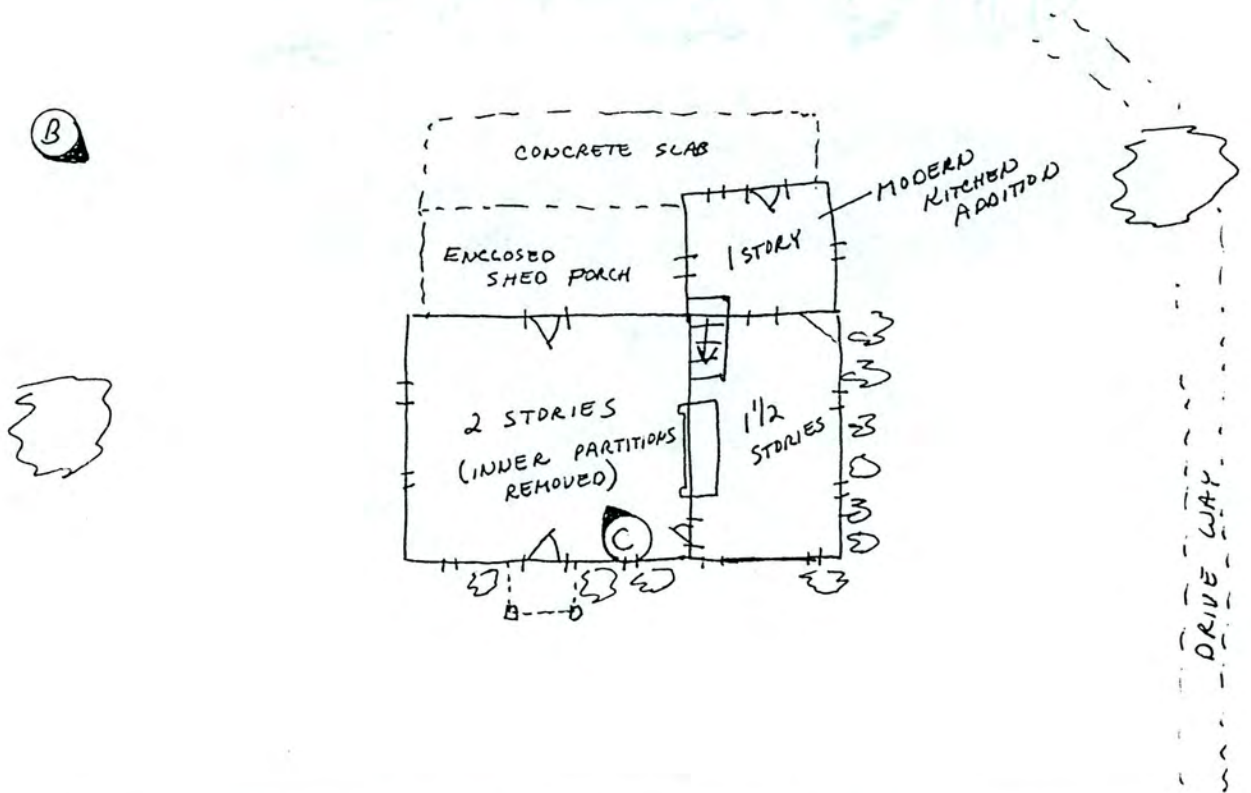 B
CONCRETE SLAB
MODERN
KITCHEN
ADDITION
ENCLOSED
SHED PORCH
1 STORY
2 STORIES
(INNER PARTITIONS
REMOVED)
1 1/2
STORIES
C
DRIVE WAY